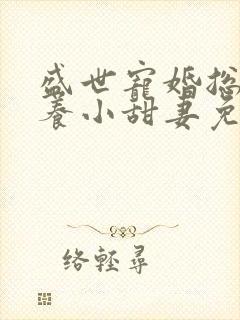 盛世寵婚總
養小甜妻免
絡輕尋